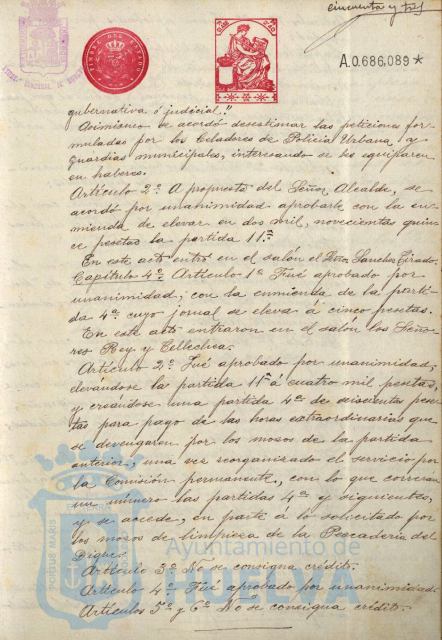 cincuenta y tres
TIMBRE DEL ESTADO
A.0.686,089*
gubernativa ó judicial."
Asimismo se acordó desestimar las peticiones for-
muladas por los Celadores de Policia Urbana, y
guardias municipales, interesando se les equiparen
en haberes.
Artículo 2º. A propuesta del Señor Alcalde, se
acordó por unanimidad aprobarle con la en-
mienda de elevar en dos mil, novecientas quin-
ce pesetas la partida 11ª.
En este acto entró en el salón el Señor Sanchez Tirado.
Capítulo 4º. Artículo 1º. Fué aprobado por
unanimidad, con la enmienda de la parti-
da 4ª. cuyo jornal se eleva á cinco pesetas.
En este acto entraron en el salón los Seño-
res Rey y Tellechea.
Artículo 2º. Fué aprobado por unanimidad,
elevándose la partida 11ª á cuatro mil pesetas,
y creándose una partida 4ª de seiscientas pese-
tas para pago de las horas extraordinarias que
se devengaren por los mozos de la partida
anterior, una vez reorganizado el servicio por
la Comisión permanente, con lo que correran
un número las partidas 4ª y siguientes,
y se accede, en parte á lo solicitado por
los mozos de limpieza de la Pescadería del
Dique.
Artículo 3º. No se consigna crédito.
Artículo 4º. Fué aprobado por unanimidad.
Artículos 5º. y 6º. No se consigna crédito.
PORTUS MARIS
Ayuntamiento de
HUELVA